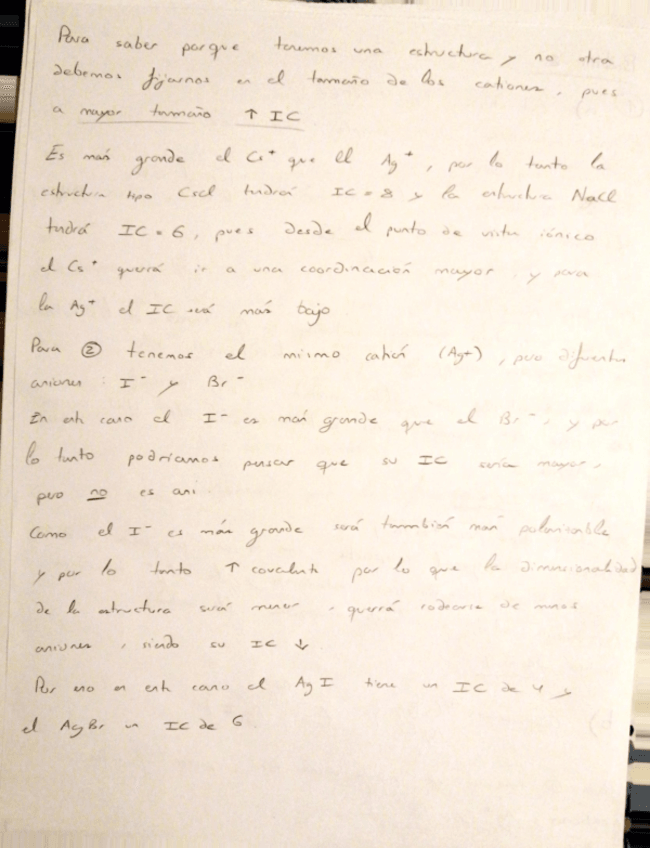 Para saber porque tenemos una estructura y no otra
debemos fijarnos en el tamaño de los cationes, pues
a mayor tamaño ↑ IC
Es más grande el Cs⁺ que el Ag⁺, por lo tanto la
estructura tipo CsCl tendrá IC = 8 y la estructura NaCl
tendrá IC = 6, pues desde el punto de vista iónico
el Cs⁺ querrá ir a una coordinación mayor, y para
la Ag⁺ el IC será más bajo.
Para ② tenemos el mismo catión (Ag+), pero diferentes
aniones: I⁻ y Br⁻
En este caso el I⁻ es más grande que el Br⁻, y por
lo tanto podríamos pensar que su IC sería mayor,
pero no es así.
Como el I⁻ es más grande será también más polarizable
y por lo tanto ↑ covalente por lo que la dimensionalidad
de la estructura será menor, querrá rodearse de menos
aniones, siendo su IC ↓
Por eso en este caso el AgI tiene un IC de 4 y
el AgBr un IC de 6.